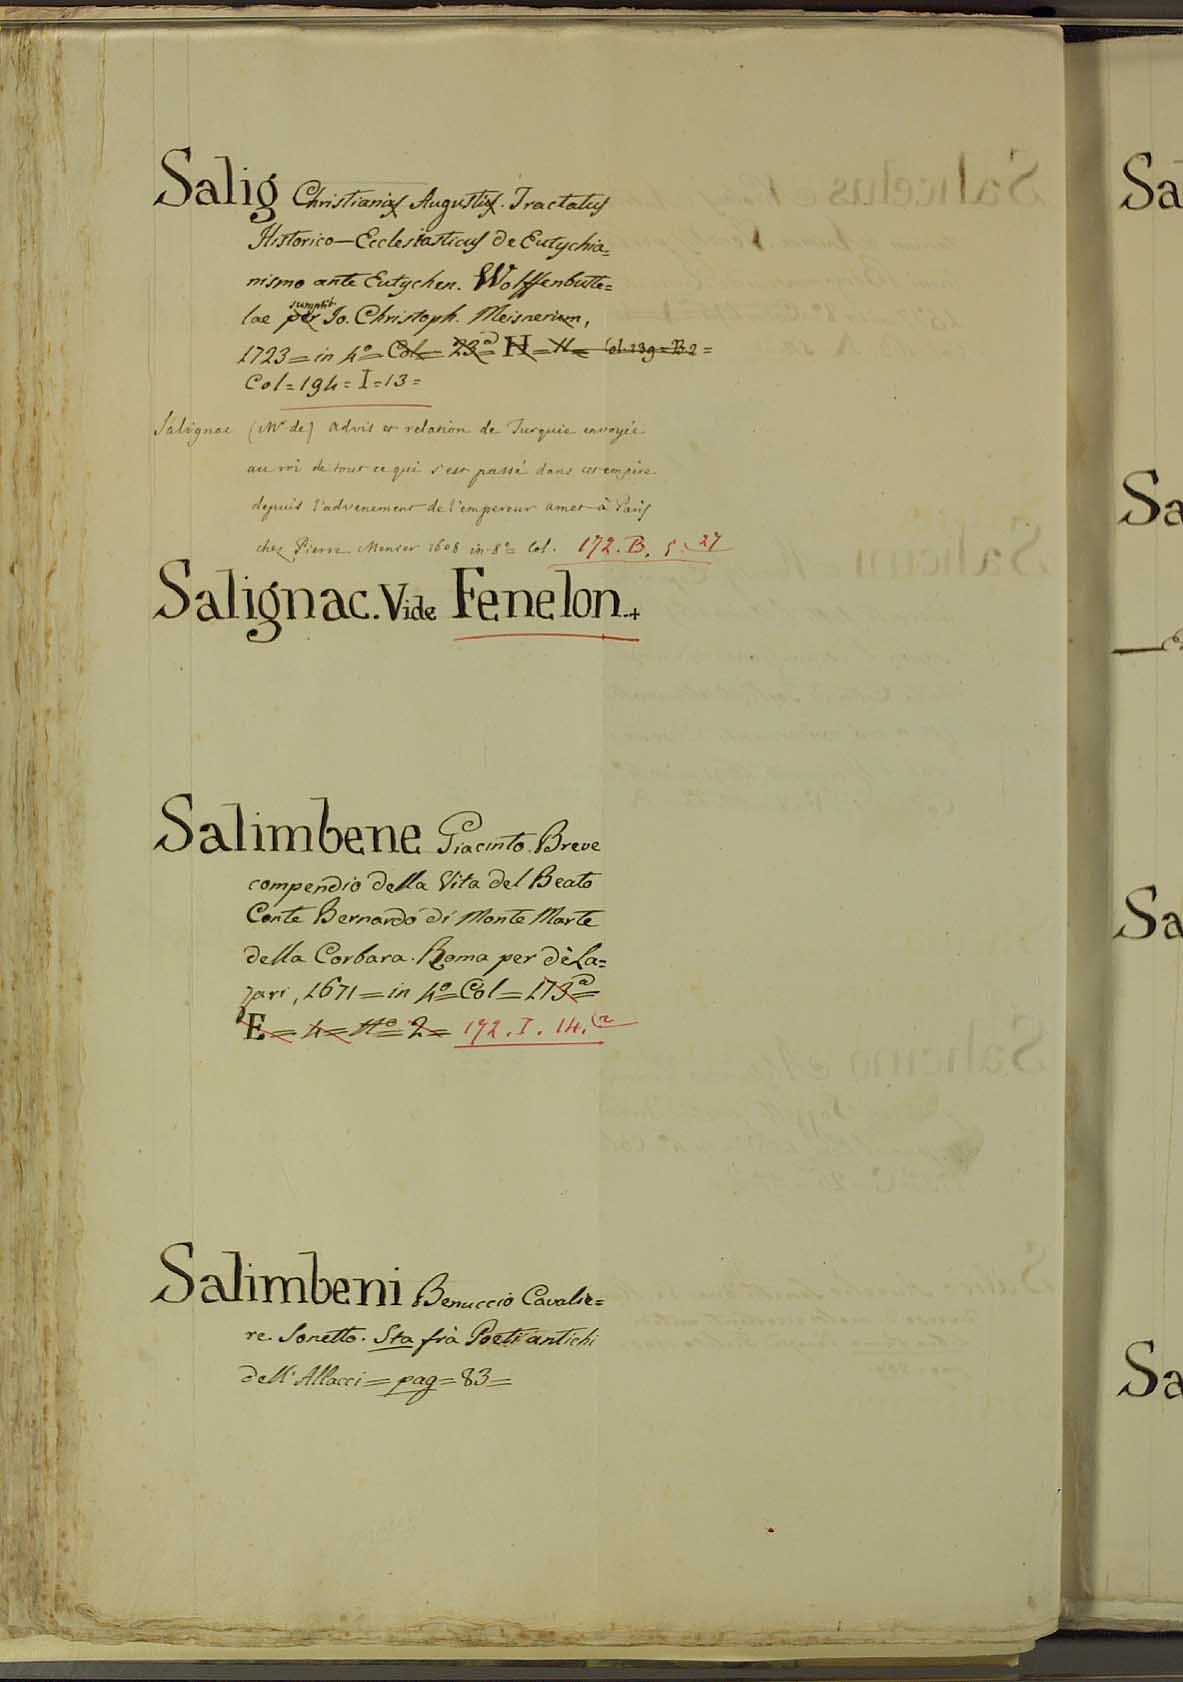 Salig Christianus Augustus. Tractatus
Historico-Ecclesiasticus de Eutychia=
nismo ante Eutychen. Wolffenbutte=
lae per sumptib. Jo. Christoph. Meisnerium,
1723= in 4º= Col= 23ª= H= 4= Col. 139= B 2=
Col= 194= I= 13=
Salignac (Mr de) advis et relation de Turquie envoyée
au roi de tout ce qui s'est passé dans cet empire
depuis l'advenement de l'empereur amet à Paris
chez Pierre Menier 1608 in-8º= Col. 172. B. 5. 27
Salignac. Vide Fenelon.+
Salimbene Giacinto. Breve
compendio della Vita del Beato
Conte Bernardo di Monte Marte
della Corbara. Roma per di La=
zari, 1671= in 4º= Col= 173ª=
E= 4= Nº= 2= 172. I. 14. (2
Salimbeni Benuccio Cavalie=
re. Sonetto. Sta frà Poeti antichi
dell'Allacci= pag= 83=
Sa
Sa
Sa
Sa